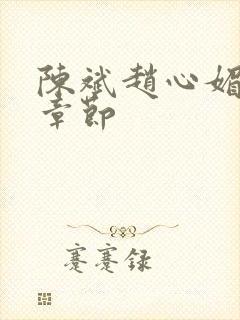 陳斌趙心媚
章節
蹇蹇録